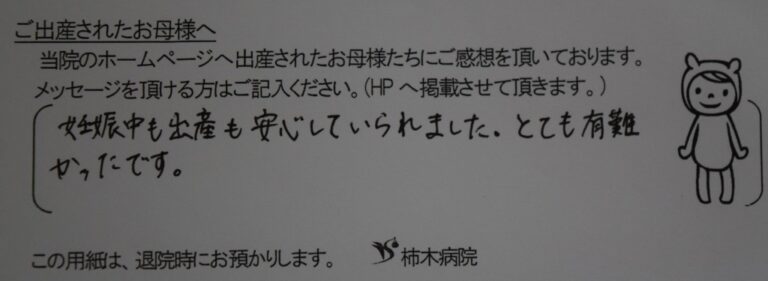 ご出産されたお母様へ
当院のホームページへ出産されたお母様たちにご感想を頂いております。
メッセージを頂ける方はご記入ください。(HPへ掲載させて頂きます。)
妊娠中も出産も安心していられました。とても有難
かったです。
この用紙は、退院時にお預かりします。 柿木病院